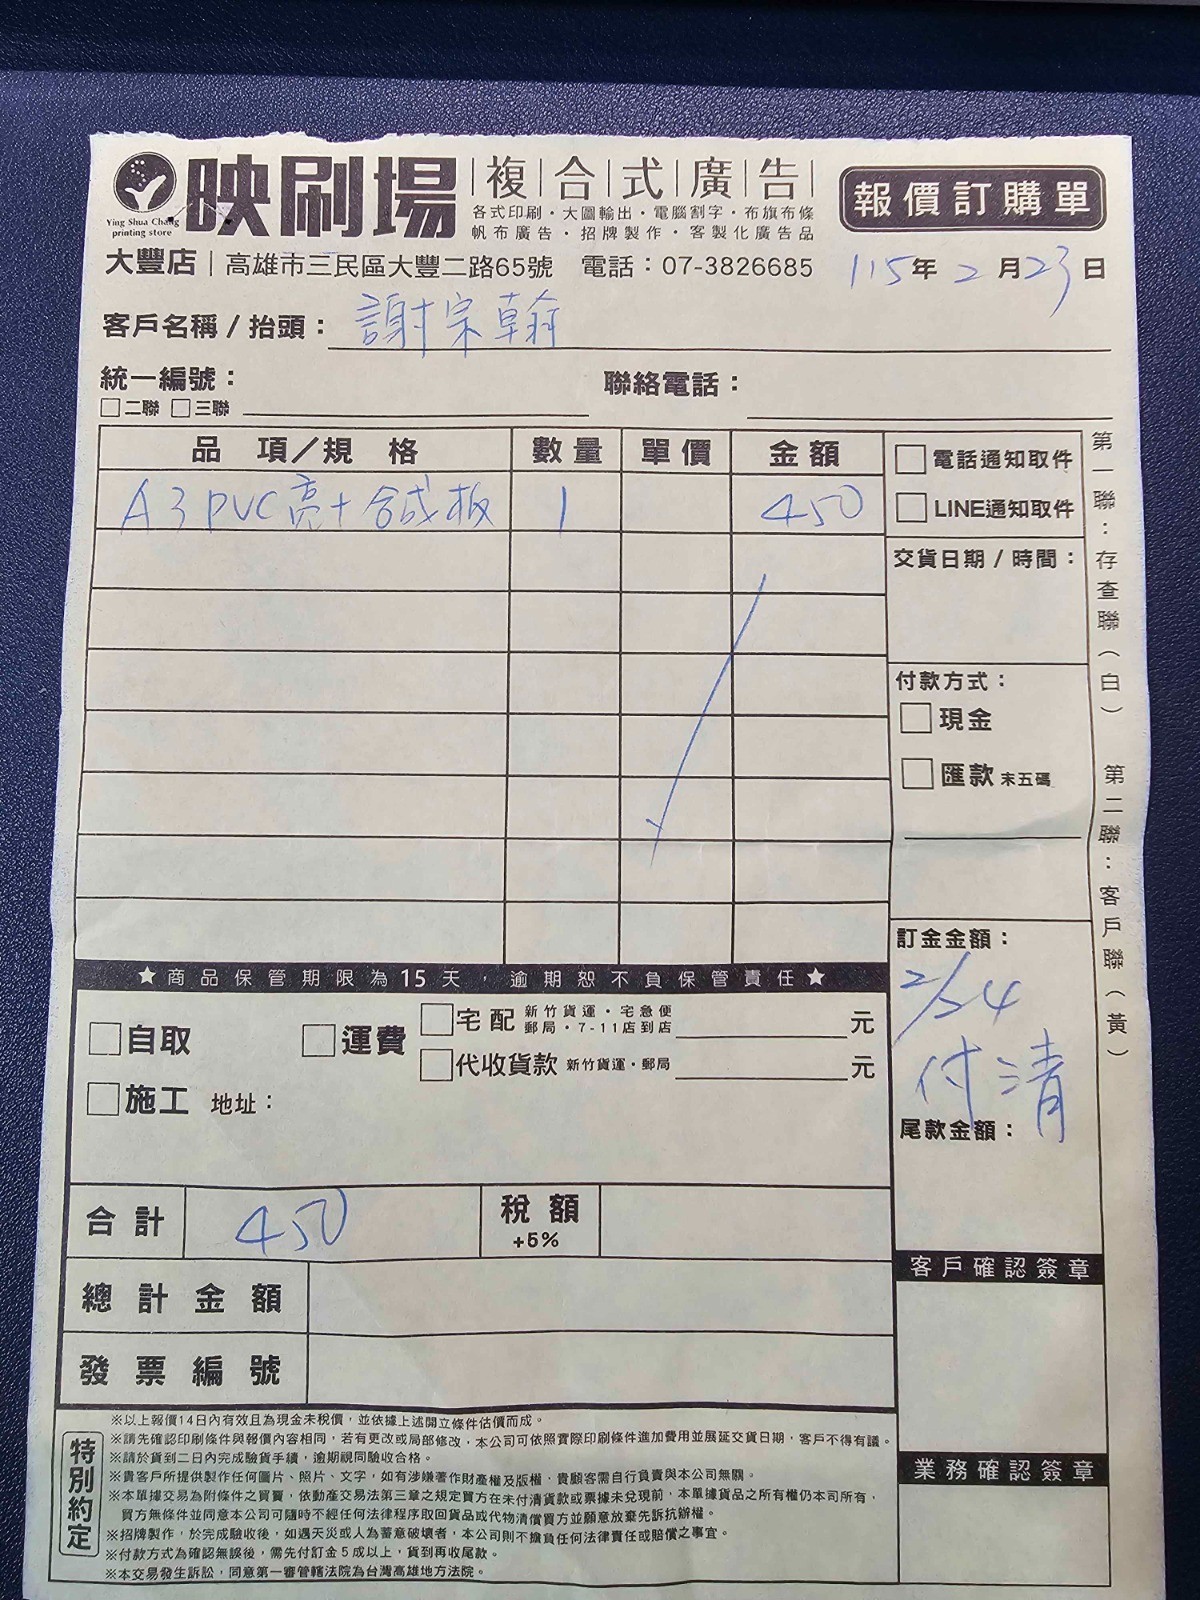 映刷場
Ying Shua Chang
printing store
複合式廣告
各式印刷・大圖輸出・電腦割字・布旗布條
帆布廣告・招牌製作・客製化廣告品
報價訂購單
大豐店｜高雄市三民區大豐二路65號 電話：07-3826685
115年2月23日
客戶名稱/抬頭：謝宗翰
統一編號：
□二聯 □三聯
聯絡電話：
品項/規格 數量 單價 金額
A3 PVC亮+合成板 1 450
□電話通知取件
□LINE通知取件
交貨日期/時間：
付款方式：
□現金
□匯款 末五碼
訂金金額：
2/24
付清
尾款金額：
第一聯：存查聯（白） 第二聯：客戶聯（黃）
★商品保管期限為15天，逾期恕不負保管責任★
□自取 □運費 □宅配 新竹貨運・宅急便 郵局・7-11店到店 元
□代收貨款 新竹貨運・郵局 元
□施工 地址：
合計 450 稅額 +5%
總計金額
發票編號
客戶確認簽章
業務確認簽章
特別約定
※以上報價14日內有效且為現金未稅價，並依據上述開立條件估價而成。
※請先確認印刷條件與報價內容相同，若有更改或局部修改，本公司可依照實際印刷條件進加費用並展延交貨日期，客戶不得有議。
※請於貨到二日內完成驗貨手續，逾期視同驗收合格。
※貴客戶所提供製作任何圖片、照片、文字，如有涉嫌著作財產權及版權，貴顧客需自行負責與本公司無關。
※本單據交易為附條件之買賣，依動產交易法第三章之規定買方在未付清貨款或票據未兌現前，本單據貨品之所有權仍本司所有，
買方無條件並同意本公司可隨時不經任何法律程序取回貨品或代物清償買方並願意放棄先訴抗辯權。
※招牌製作，於完成驗收後，如遇天災或人為蓄意破壞者，本公司則不擔負任何法律責任或賠償之事宜。
※付款方式為確認無誤後，需先付訂金5成以上，貨到再收尾款。
※本交易發生訴訟，同意第一審管轄法院為台灣高雄地方法院。